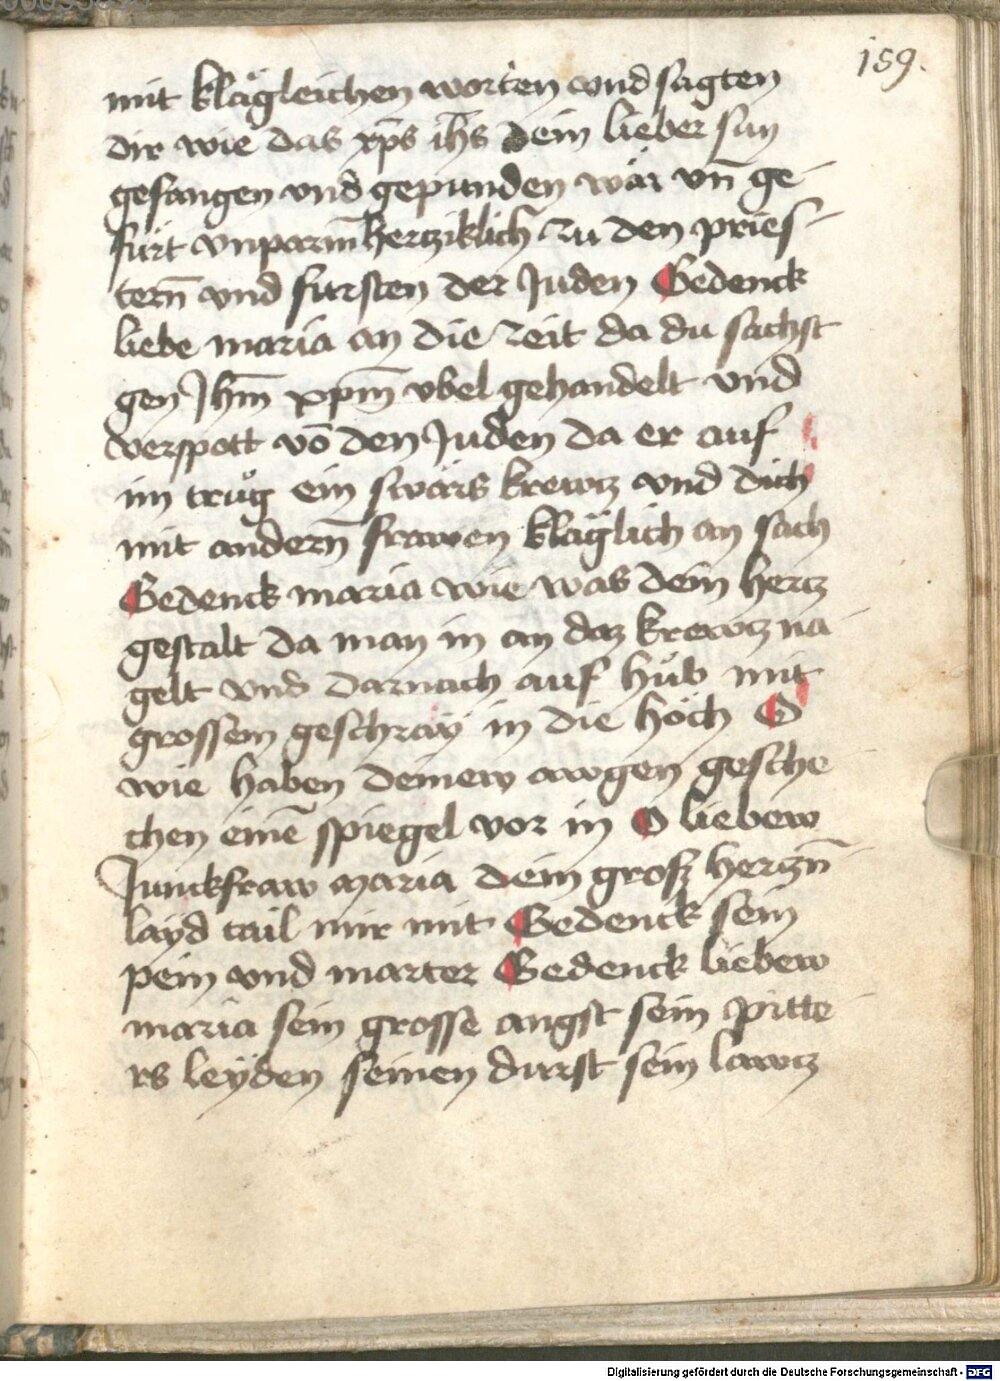 159.
mit klägleichen worten vnd sagten
dir wie das xp̄s ih̄s dein lieber sun
gefangen vnd gepunden wär vn̄ ge-
fürt vnparm̄hertziklich zu den pries-
tern̄ vnd fursten der Juden Gedenck
liebe maria an die zeit da du sachst
gen Jhm̄ xpm̄ vbel gehandelt vnd
verspott vō den Juden da er auf
im trůg ein swärs krewtz vnd dich
mit andern̄ frawen kläglich an sach
Gedenck maria wie was dein hertz
gestalt da man in an daz krewtz na
gelt vnd darnach auf hůb mit
grossem geschray in die höch O
wie haben deinew awgen gesche
chen einē spiegel vor in O liebew
Junckfraw maria dein grosz hertzn̄
layd tail mir mit Gedenck sein
pein vnd marter Gedenck liebew
maria sein grosse angst sein pitte
rs leyden seinen durst sein lawtz
Digitalisierung gefördert durch die Deutsche Forschungsgemeinschaft - DFG